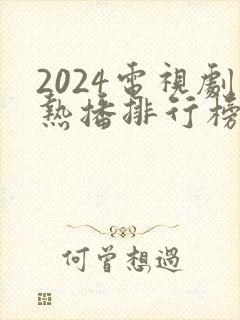 2024電視劇
熱播排行榜
何曾想過